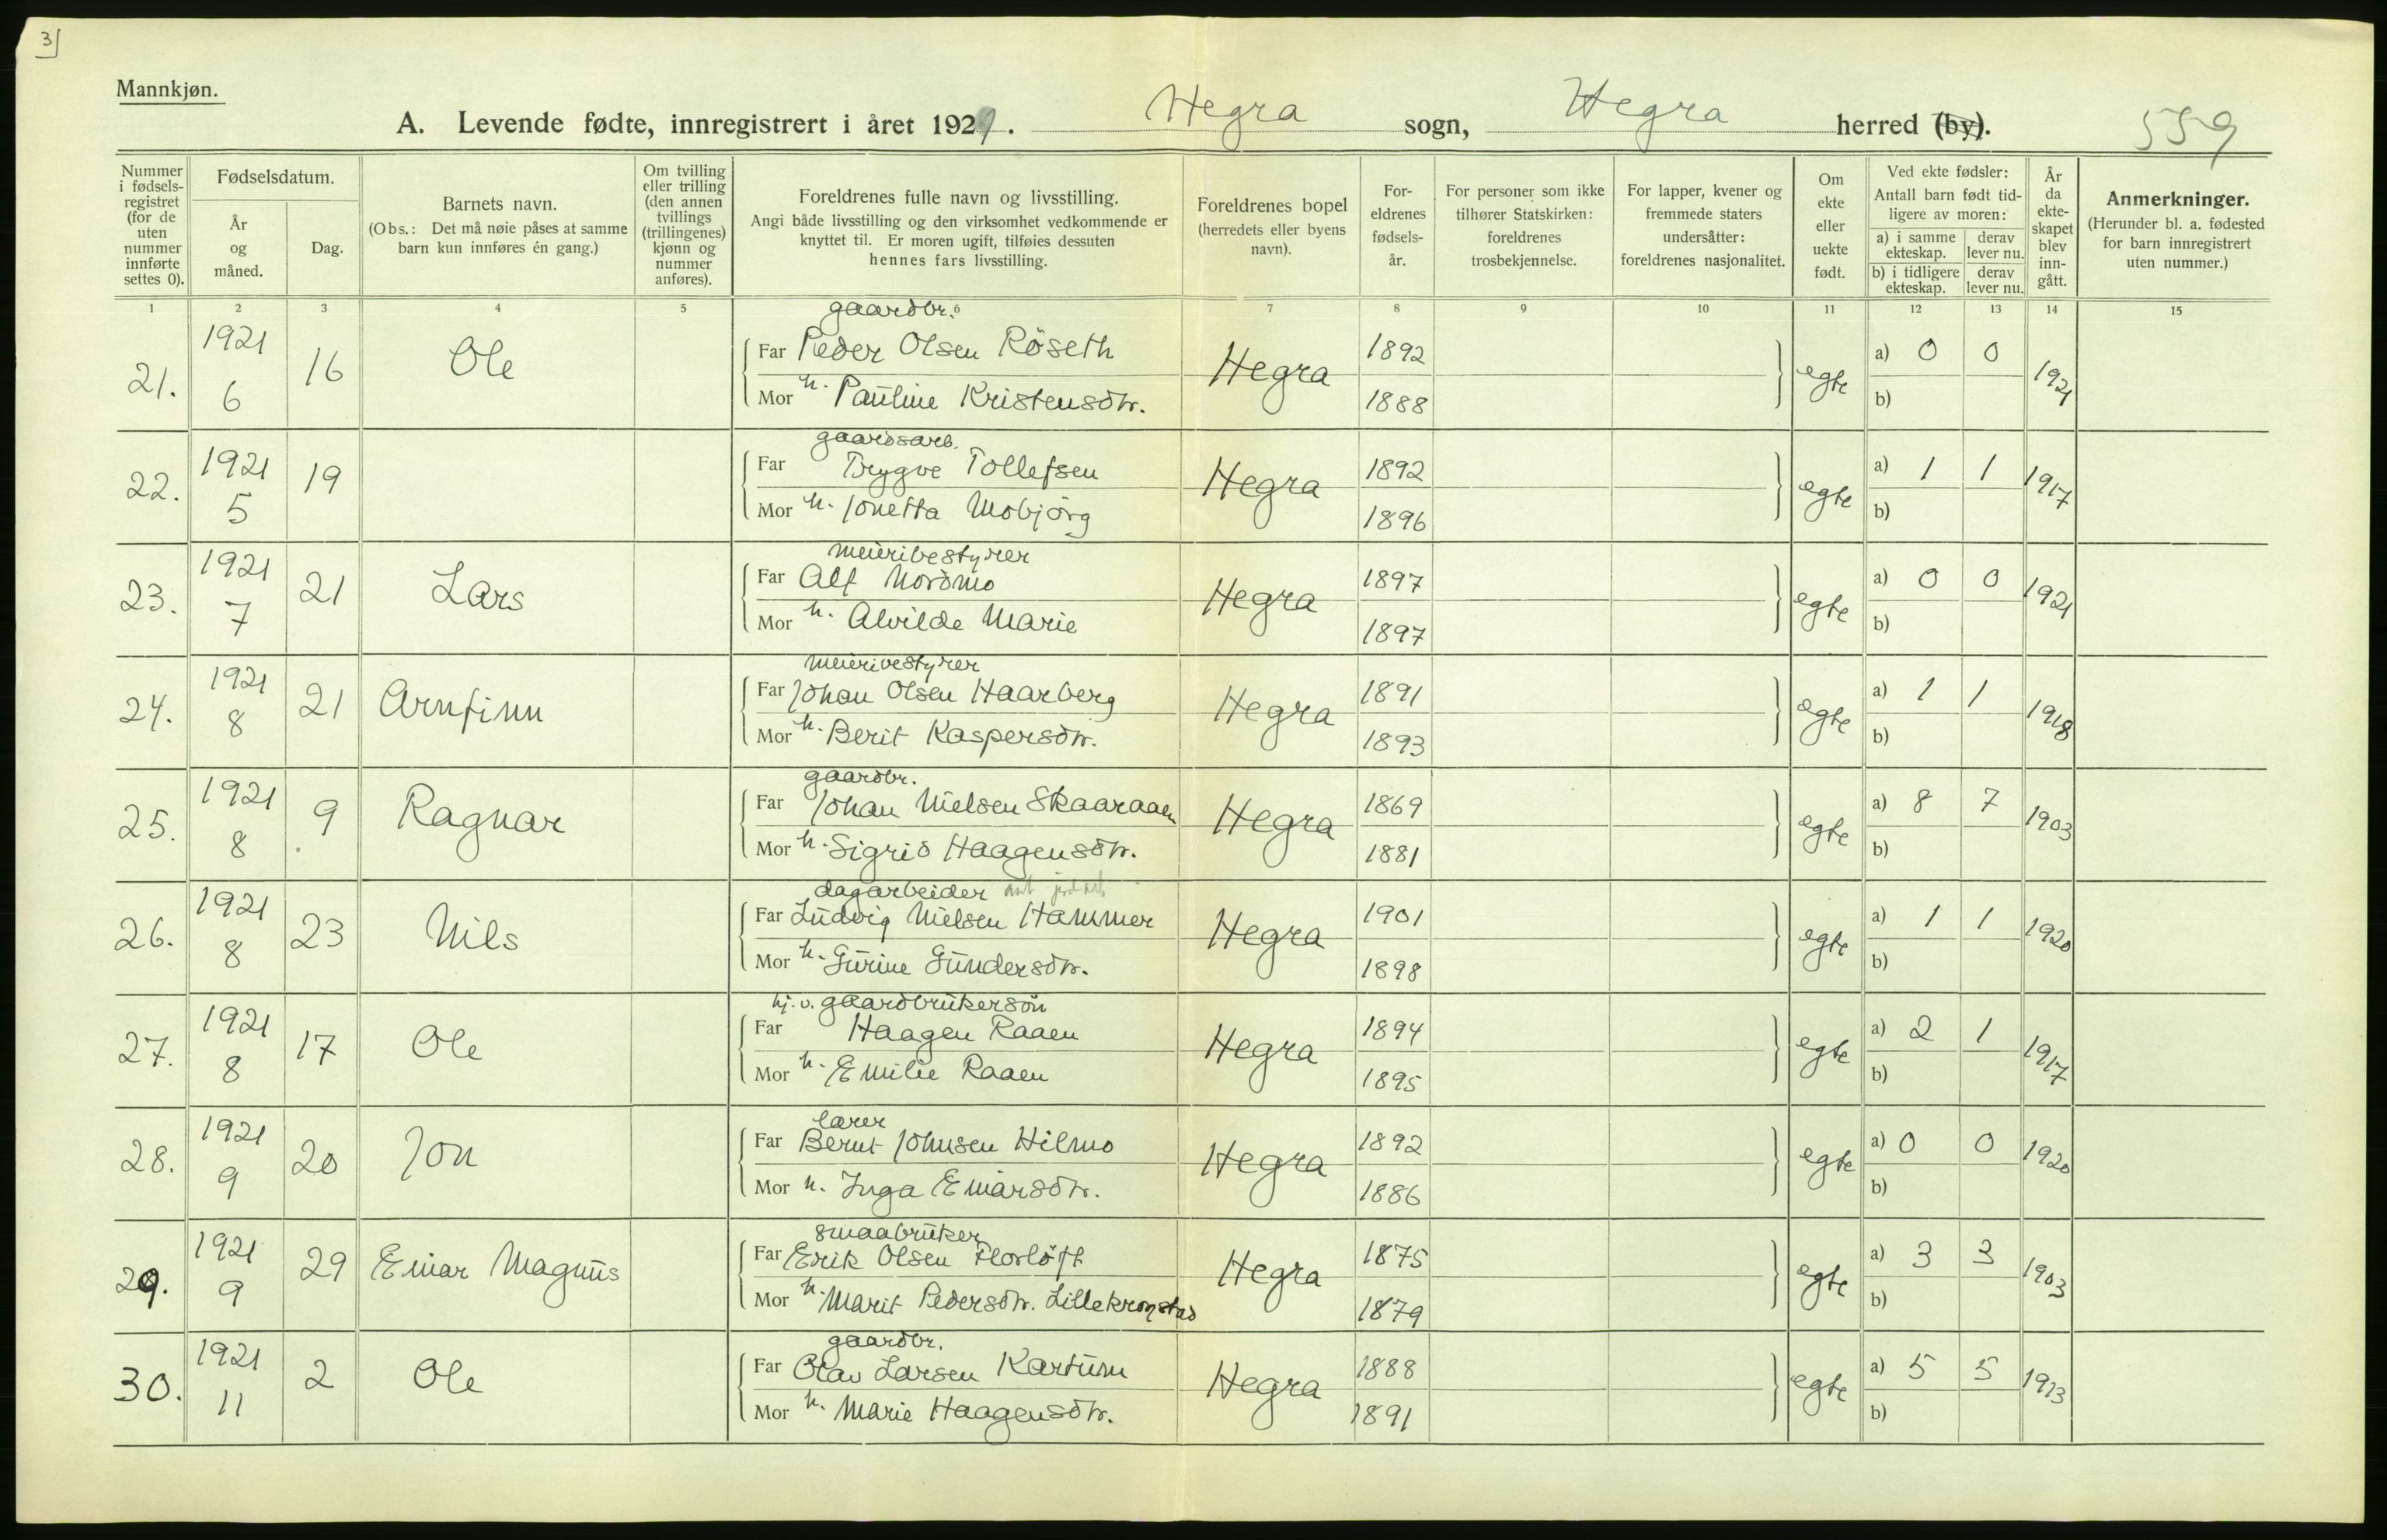 3
Mannkjøn.
A. Levende fødte, innregistrert i året 1921. Hegra sogn, Hegra herred (by). 559
Nummer i fødsels-registret (for de uten nummer innførte settes 0).
Fødselsdatum.
År og måned.
Dag.
Barnets navn.
(Obs.: Det må nøie påses at samme barn kun innføres én gang.)
Om tvilling eller trilling (den annen tvillings (trillingenes) kjønn og nummer anføres).
Foreldrenes fulle navn og livsstilling.
Angi både livsstilling og den virksomhet vedkommende er knyttet til. Er moren ugift, tilføies dessuten hennes fars livsstilling.
Foreldrenes bopel (herredets eller byens navn).
For-eldrenes fødsels-år.
For personer som ikke tilhører Statskirken: foreldrenes trosbekjennelse.
For lapper, kvener og fremmede staters undersåtter: foreldrenes nasjonalitet.
Om ekte eller uekte født.
Ved ekte fødsler: Antall barn født tid-ligere av moren:
a) i samme ekteskap. derav lever nu.
b) i tidligere ekteskap. derav lever nu.
År da ekte-skapet blev inn-gått.
Anmerkninger.
(Herunder bl. a. fødested for barn innregistrert uten nummer.)
1 2 3 4 5 6 7 8 9 10 11 12 13 14 15
gaardbr.
21. 1921 6 16 Ole Far Peder Olsen Röseth Hegra 1892 egte a) 0 0 1921
Mor h. Pauline Kristensdtr. 1888 b)
gaardsarb.
22. 1921 5 19 Far Trygve Tollefsen Hegra 1892 egte a) 1 1 1917
Mor h. Jonetta Mobjörg 1896 b)
meieribestyrer
23. 1921 7 21 Lars Far Alf Nordmo Hegra 1897 egte a) 0 0 1921
Mor h. Alvilde Marie 1897 b)
meieribestyrer
24. 1921 8 21 Arnfinn Far Johan Olsen Haarberg Hegra 1891 egte a) 1 1 1918
Mor h. Berit Kaspersdtr. 1893 b)
gaardbr.
25. 1921 8 9 Ragnar Far Johan Nielsen Skaaraaen Hegra 1869 egte a) 8 7 1903
Mor h. Sigrid Haagensdtr. 1881 b)
dagarbeider
26. 1921 8 23 Nils Far Ludvig Nielsen Hammer Hegra 1901 egte a) 1 1 1920
Mor h. Gurine Gundersdtr. 1898 b)
hj. v. gaardbrukersön
27. 1921 8 17 Ole Far Haagen Raaen Hegra 1894 egte a) 2 1 1917
Mor h. Emilie Raaen 1895 b)
lærer
28. 1921 9 20 Jon Far Bernt Johnsen Hilmo Hegra 1892 egte a) 0 0 1920
Mor h. Inga Einarsdtr. 1886 b)
smaabruker
29. 1921 9 29 Einar Magnus Far Erik Olsen Florlöft Hegra 1875 egte a) 3 3 1903
Mor h. Marit Pedersdtr. Lillekrogstad 1879 b)
gaardbr.
30. 1921 11 2 Ole Far Olav Larsen Kartum Hegra 1888 egte a) 5 5 1913
Mor h. Marie Haagensdtr. 1891 b)